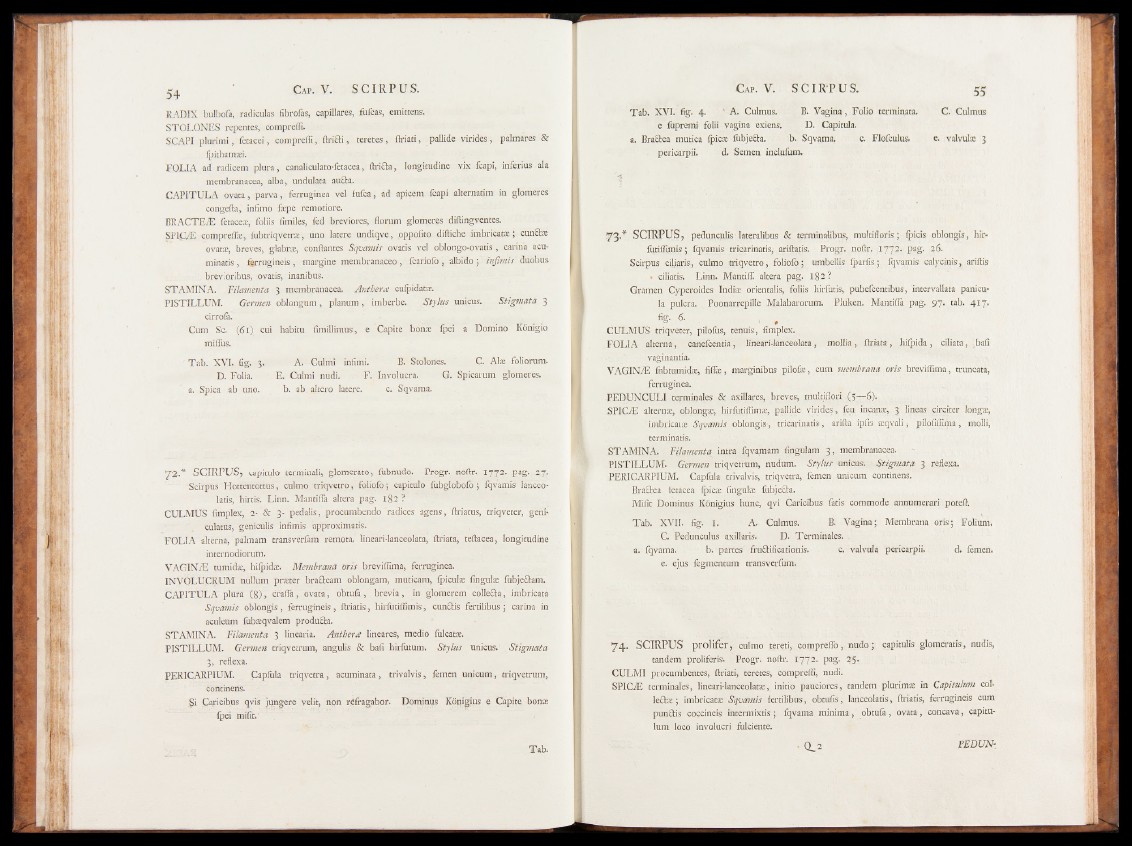 54 CAP. V. SCIRPUS.
RADIX bulboſa, radiculas fibroſas, capillares, fuſcas, emittens.
STOLONES repentes, compreſſi.
SCAPI plurimi, ſetacei, compreſſi, ſtricti, teretes, ſtriati, pallide virides, palmares &
ſpithamæi.
FOLIA ad radicem plura, canaliculato-ſetacea, ſtricta, longitudine vix ſcapi, inferius ala
membranacea, alba, undulata aucta.
CAPITULA ovata, parva, ferruginea vel fuſca, ad apicem ſcapi alternatim in glomeres
congeſta, infimo ſæpe remotiore.
BRACTEÆ ſetaceæ, foliis ſimiles, ſed breviores, florum glomeres diſtingventes.
SPICÆ compreſſæ, ſubtriqvetræ, uno latere undiqve, oppoſito diſtiche imbricatæ; cunctæ
ovatæ, breves, glabræ, conſtantes Squamis ovatis vel oblongo-ovatis, carina acu-
minatis, ferrugineis, margine membranaceo, ſcarioſo, albido; infimis duobus
brevioribus, ovatis, inanibus.
STAMINA. Filamenta 3 membranacea. Antheræ cuſpidatæ.
PISTILLUM. Germen oblongum, planum, imberbe. Stylus unicus. Stigmata 3
cirroſa.
Cum Sc. (61) cui habitu ſimillimus, e Capite bonæ ſpei a Domino Königio
miſſus.
Tab. XVI. fig. 3. A. Culmi infimi. B. Stolones. C. Alæ foliorum.
D. Folia. E. Culmi nudi. F. Involucra. G. Spicarum glomeres.
a. Spica ab uno. b. ab altero latere. c. Sqvama.
72.* SCIRPUS, capitulo terminali, glomerato, ſubnudo. Progr. noſtr. 1772. pag. 27.
Scirpus Hottentottus, culmo triqvetro, folioſo; capitulo ſubgloboſo; ſqvamis lanceo-
latis, hirtis. Linn. Mantiſſa altera pag. 182?
CULMUS ſimplex, 2- & 3- pedalis, procumbendo radices agens, ſtriatus, triqveter, geni-
culatus, geniculis infimis approximatis.
FOLIA alterna, palmam transverſam remota, lineari-lanceolata, ſtriata, teſtacea, longitudine
internodiorum.
VAGINÆ tumidæ, hiſpidæ. Membrana oris breviſſima, ferruginea.
INVOLUCRUM nullum præter bracteam oblongam, muticam, ſpiculæ ſingulæ ſubjectam.
CAPITULA plura (8), craſſa, ovata, obtuſa, brevia, in glomerem collecta, imbricata
Sqvamis oblongis, ferrugineis, ſtriatis, hirſutiſſimis, cunctis fertilibus; carina in
aculeum ſubæqvalem producta.
STAMINA. Filamenta 3 linearia. Antheræ lineares, medio ſulcatæ.
PISTILLUM. Germen triqvetrum, angulis & baſi hirſutum. Stylus unicus. Stigmata
3, reflexa.
PERICARPIUM. Capſula triqvetra, acuminata, trivalvis, ſemen unicum, triqvetrum,
continens.
Si Caricibus qvis jungere velit, non réfragabor. Dominus Königius e Capite bonæ
ſpei miſit.
Tab.
CAP. V. SCIRPUS. 55
Tab. XVI. fig. 4. A. Culmus. B. Vagina, Folio terminata. C. Culmus
e ſupremi folii vagina exiens. D. Capitula.
a. Bractea mutica ſpicæ ſubjecta. b. Sqvama. c. Floſculus. e. valvulæ 3
pericarpii. d. Semen incluſum.
73.* SCIRPUS, pedunculis lateralibus & terminalibus, multifloris; ſpicis oblongis, hir-
ſutiſſimis; ſqvamis tricarinatis, ariſtatis. Progr. noſtr. 1772. pag. 26.
Scirpus ciliaris, culmo triqvetro, folioſo; umbellis ſparſis; ſqvamis calycinis, ariſtis
ciliatis. Linn. Mantiſſ. altera pag. 182?
Gramen Cyperoides Indiæ orientalis, foliis hirſutis, pubeſcentibus, intervallata panicu-
la pulcra. Poonarrepille Malabarorum. Pluken. Mantiſſa pag. 97. tab. 417.
fig. 6.
CULMUS triqveter, piloſus, tenuis, ſimplex.
FOLIA alterna, caneſcentia, lineari-lanceolata, mollia, ſtriata, hiſpida, ciliata, baſi
vaginantia.
VAGINÆ ſubtumidæ, fiſſæ, marginibus piloſis, cum membrana oris breviſſima, truncata,
ferruginea.
PEDUNCULI terminales & axillares, breves, multiflori (5—6).
SPICÆ alternæ, oblongæ, hirſutiſſimæ, pallide virides, ſeu incanæ, 3 lineas circiter longæ,
imbricatæ Sqvamis oblongis, tricarinatis, ariſta ipſis æqvali, piloſiſſima, molli,
terminatis.
STAMINA. Filamenta intra ſqvamam ſingulam 3, membranacea.
PISTILLUM. Germen triqvetrum, nudum. Stylus unicus. Stigmata 3 reflexa.
PERICARPIUM. Capſula trivalvis, triqvetra, ſemen unicum continens.
Bractea ſetacea ſpicæ ſingulæ ſubjecta.
Miſit Dominus Königius hunc, qvi Caricibus ſatis commode annumerari poteſt.
Tab. XVII. fig. 1. A. Culmus. B. Vagina; Membrana oris; Folium.
C. Pedunculus axillaris. D. Terminales.
a. ſqvama. b. partes fructificationis. c. valvula pericarpii. d. ſemen.
e. ejus ſegmentum transverſum.
74. SCIRPUS prolifer, culmo tereti, compreſſo, nudo; capitulis glomeratis, nudis,
tandem proliferis. Progr. noſtr. 1772. pag. 25.
CULMI procumbentes, ſtriati, teretes, compreſſi, nudi.
SPICÆ terminales, lineari-lanceolatæ, initio pauciores, tandem plurimæ in Capitulum col-
lectæ; imbricatæ Sqvamis fertilibus, obtuſis, lanceolatis, ſtriatis, ferrugineis cum
punctis coccineis intermixtis; ſqvama minima, obtuſa, ovata, concava, capitu-
lum loco involucri fulciente.
Q 2 PEDUN-